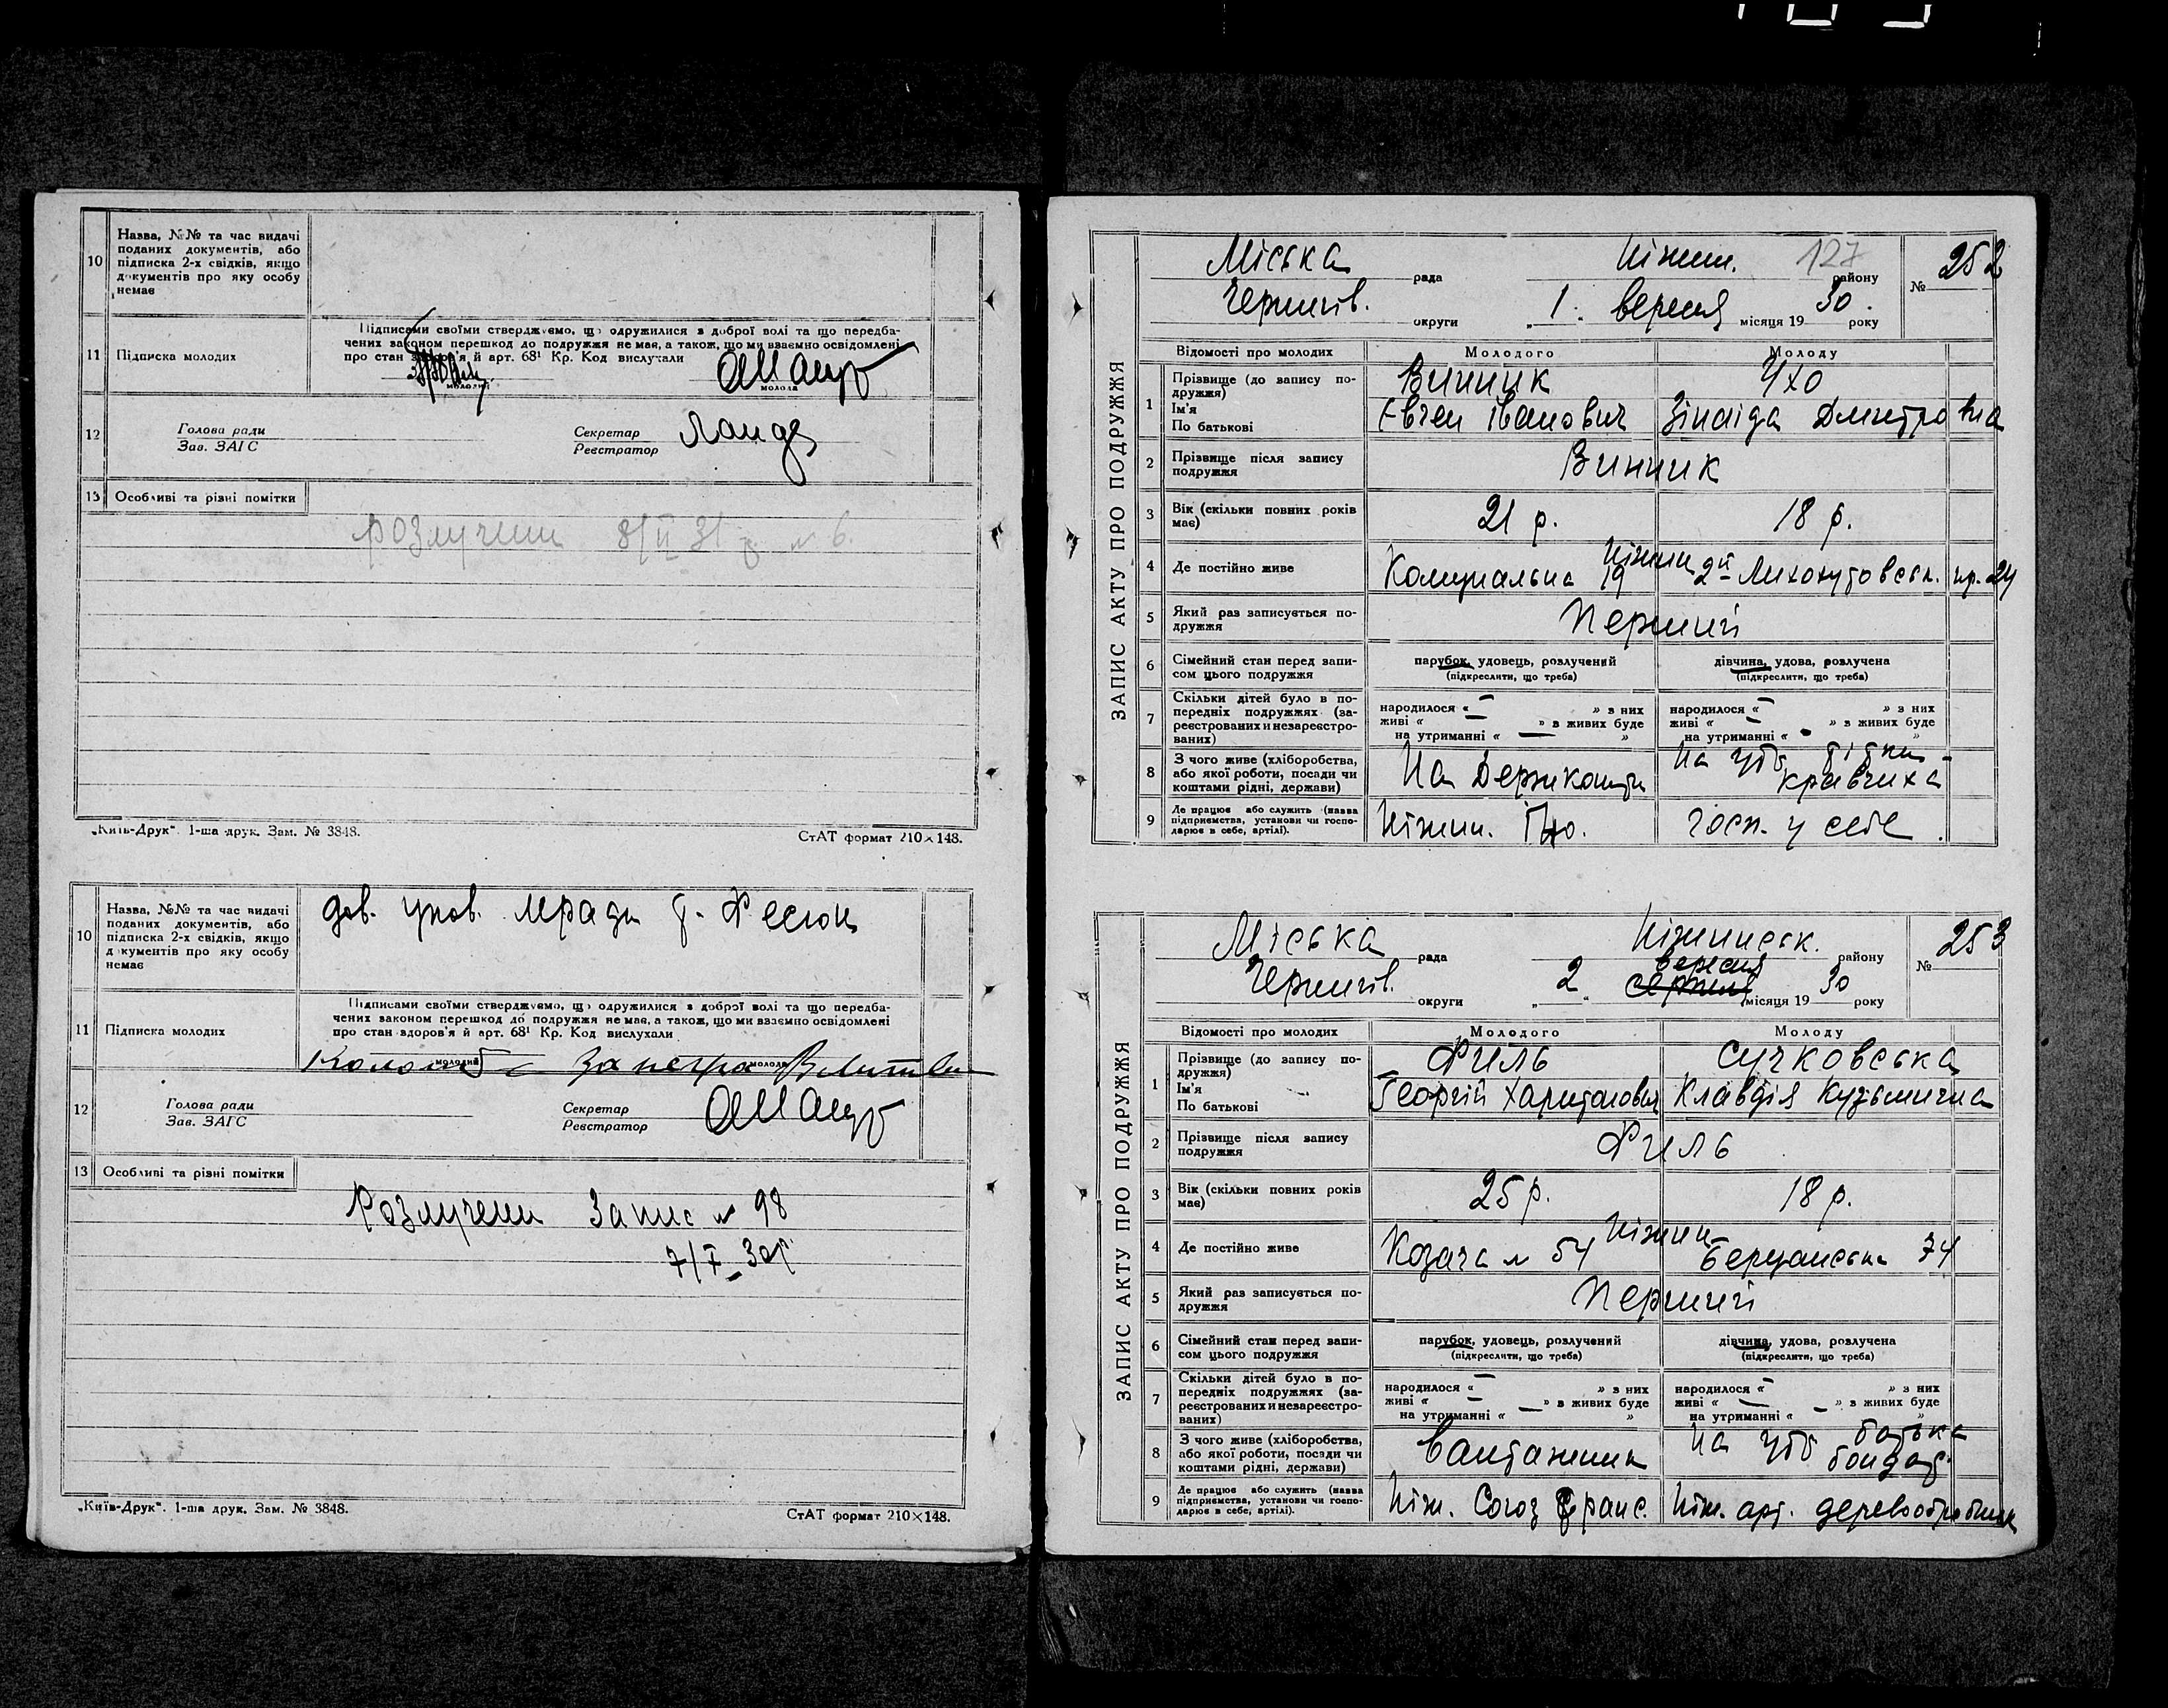 10
Назва, №№ та час видачі
поданих документів, або
підписка 2-х свідків, якщо
документів про яку особу
немає
11
Підписка молодих
Підписами своїми стверджуємо, що одружилися з доброї волі та що передба-
чених законом перешкод до подружжя не має, а також, що ми взаємно освідомлені
про стан здоров'я й арт. 68¹ Кр. Код вислухали
молодий
молода
12
Голова ради
Зав. ЗАГС
Секретар
Реєстратор
13
Особливі та різні помітки
розлучени 8/II 31 р № 6.
„Київ-Друк“. 1-ша друк. Зам. № 3848.
СтАТ формат 210×148.
10
Назва, №№ та час видачі
поданих документів, або
підписка 2-х свідків, якщо
документів про яку особу
немає
дов. упов. мради
11
Підписка молодих
Підписами своїми стверджуємо, що одружилися з доброї волі та що передба-
чених законом перешкод до подружжя не має, а також, що ми взаємно освідомлені
про стан здоров'я й арт. 68¹ Кр. Код вислухали
молодий
молода
12
Голова ради
Зав. ЗАГС
Секретар
Реєстратор
13
Особливі та різні помітки
Розлучени Запис № 98
„Київ-Друк“. 1-ша друк. Зам. № 3848.
СтАТ формат 210×148.
ЗАПИС АКТУ ПРО ПОДРУЖЖЯ
Міська рада Ніжин. району 127 № 252
Чернігів. округи „1. вересня місяця 1930. року
Відомості про молодих Молодого Молоду
1
Прізвище (до запису по-
дружжя)
Ім'я
По батькові
Винник Ухо
Євген Іванович Зінаїда Дмитровна
2
Прізвище після запису
подружжя
Винник
3
Вік (скільки повних років
має)
21 р. 18 р.
4
Де постійно живе
Ніжин
Комунальна 19
5
Який раз записується по-
дружжя
Перший
6
Сімейний стан перед запи-
сом цього подружжя
парубок, удовець, розлучений
(підкреслити, що треба)
дівчина, удова, розлучена
(підкреслити, що треба)
7
Скільки дітей було в по-
передніх подружжях (за-
реєстрованих и незареєстро-
ваних)
народилося « — » з них
живі « — » з живих буде
на утриманні « — »
народилося « — » з них
живі « — » з живих буде
на утриманні « - »
8
З чого живе (хліборобства,
або якої роботи, посади чи
коштами рідні, держави)
На Держкошти
На утр. кравчиха
9
Де працює або служить (назва
підприємства, установи чи госпо-
дарює в себе, артілі).
Ніжин. госп. у себе.
ЗАПИС АКТУ ПРО ПОДРУЖЖЯ
Міська рада Ніжинськ. району № 253
вересня
Чернігів. округи „2 серпня місяця 1930 року
Відомості про молодих Молодого Молоду
1
Прізвище (до запису по-
дружжя)
Ім'я
По батькові
Филь Сучковська
Георгій Харитонович Клавдія Кузьминична
2
Прізвище після запису
подружжя
Филь
3
Вік (скільки повних років
має)
25 р. 18 р.
4
Де постійно живе
Ніжин
Козача № 54 74
5
Який раз записується по-
дружжя
Перший
6
Сімейний стан перед запи-
сом цього подружжя
парубок, удовець, розлучений
(підкреслити, що треба)
дівчина, удова, розлучена
(підкреслити, що треба)
7
Скільки дітей було в по-
передніх подружжях (за-
реєстрованих и незареєстро-
ваних)
народилося « — » з них
живі « — » з живих буде
на утриманні « »
народилося « — » з них
живі « — » з живих буде
на утриманні « »
8
З чого живе (хліборобства,
або якої роботи, посади чи
коштами рідні, держави)
Вантажник
На утр. батька
бондар.
9
Де працює або служить (назва
підприємства, установи чи госпо-
дарює в себе, артілі).
Ніж. Союз Транс. Ніж. арт. деревообробник